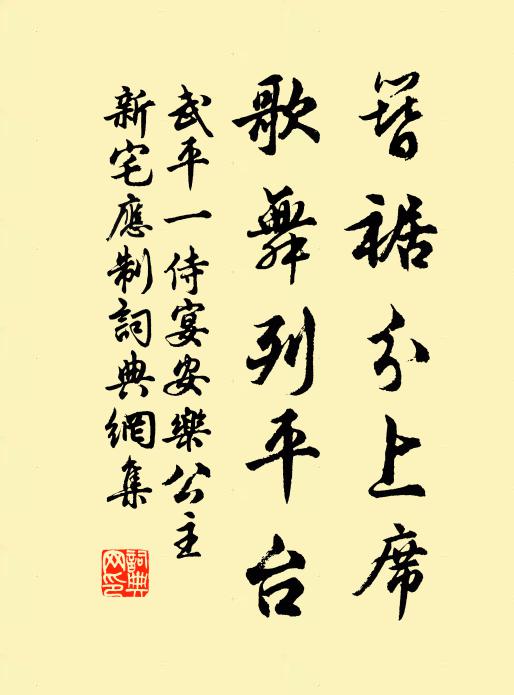 簪裾分上席
歌舞列平台
武平一侍宴安樂公主
新宅應制詞典網集
詞典網印